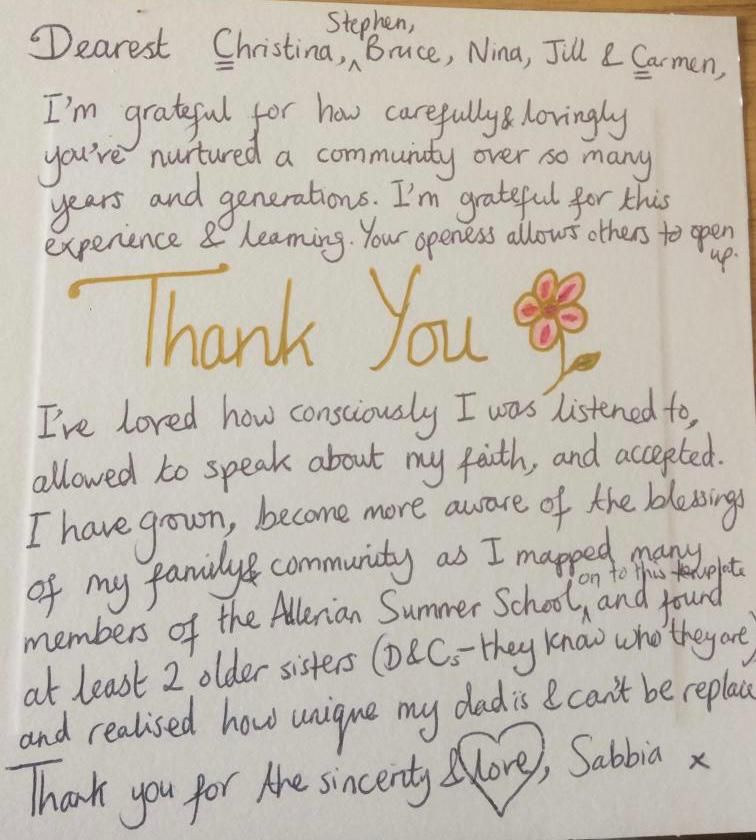 Stephen,
Dearest Christina, ^ Bruce, Nina, Jill & Carmen,
I'm grateful for how carefully & lovingly
you're nurtured a community over so many
years and generations. I'm grateful for this
experience & learning. Your openess allows others to open
up.
Thank You
I've loved how consciously I was listened to,
allowed to speak about my faith, and accepted.
I have grown, become more aware of the blessings
of my family & community as I mapped many
on to this template
members of the Adlerian Summer School, ^ and found
at least 2 older sisters (D&Cs - they know who they are)
and realised how unique my dad is & can't be replace
Thank you for the sincerity & love, Sabbia x